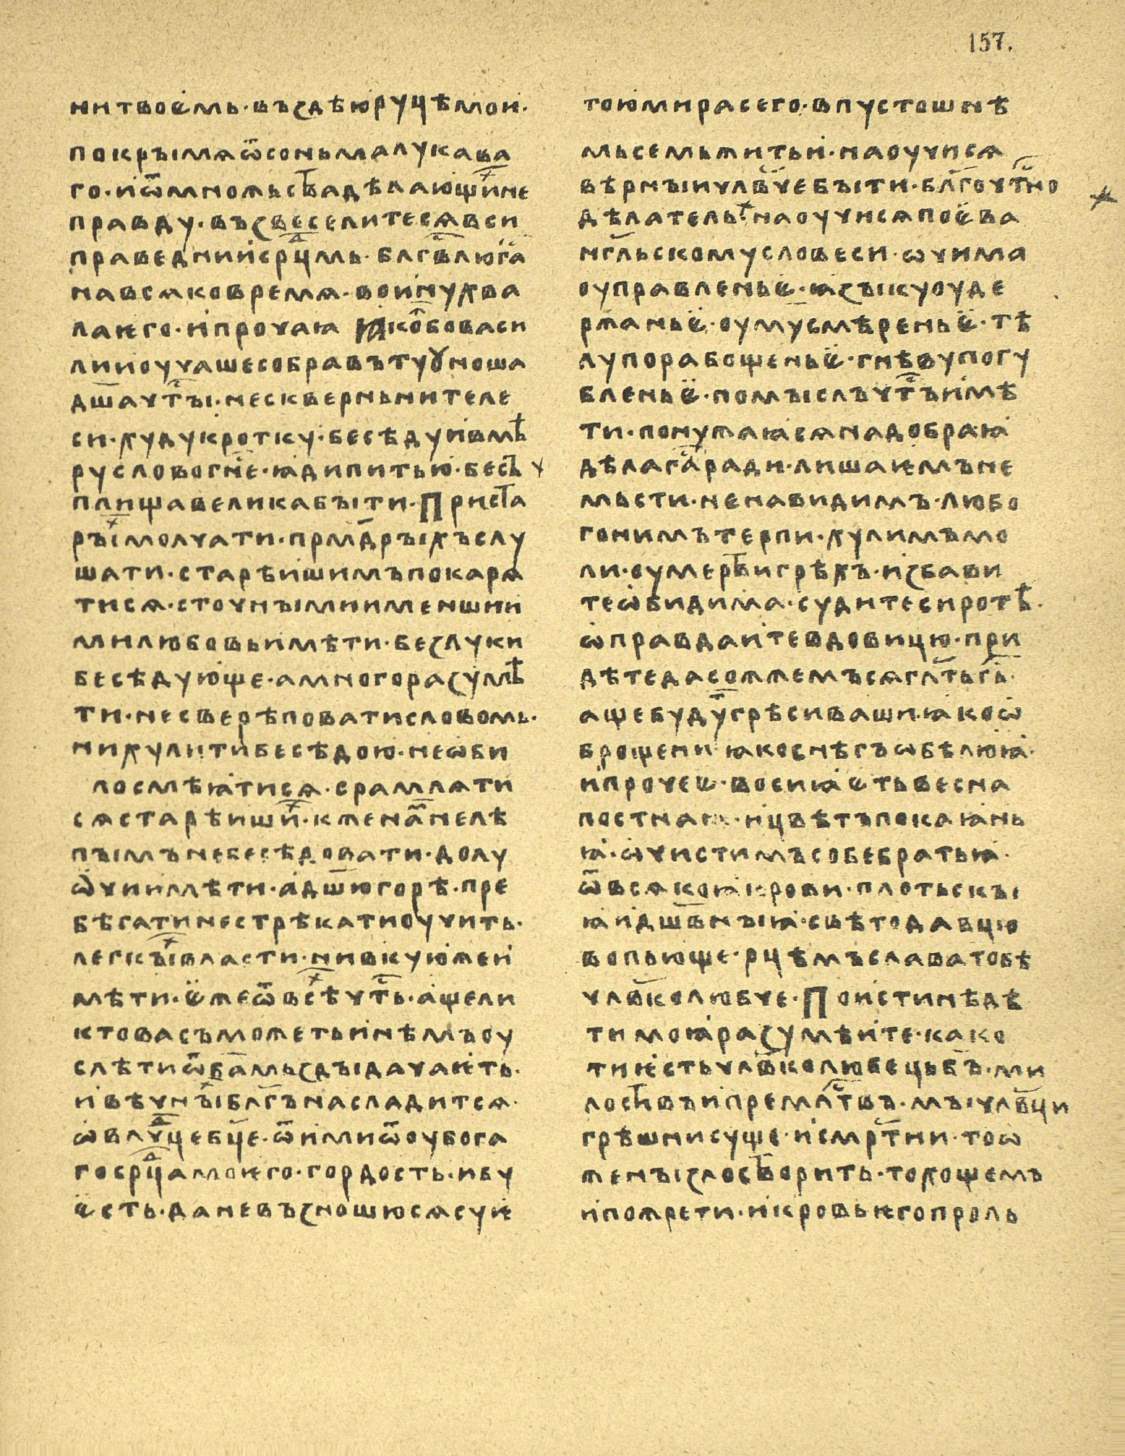 157.
ни твоємь · въздѣю руцѣ мои ·
покръі мѧ ѿ сонъма лукава
го · и ѿ множьства дѣлающиⷯ не
правду · възвеселитесѧ вси
праведнии срⷣцмь · блгⷭвлю гⷭа
на всѧко времѧ · воину хва
ла ѥго · и прочаꙗ ꙗкоⷤ бо васи
лии оучаше собравъ ту оуноша
дш҃а чтⷭъі · нескверньни теле
си · худу кротку · бесѣду и в мѣ
ру слово гнⷭе · ꙗди питью · бес
плища велика бъіти · При ста
ръіⷯ молчати · прмⷣръіхъ слу
шати · старѣишимъ покарѧ
тисѧ · с точнъіми и меншии
ми любовь имѣти · без луки
бесѣдующе · а много разумѣ
ти · не сверѣповати словомь ·
ни хулити бесѣдою · не ѡби
ло смѣꙗтисѧ · срамлѧти
сѧ старѣишиⷯ · к женаⷨ нелѣ
пъімъ не бесѣдовати · долу
ѡчи имѣти · а дш҃ю горѣ · пре
бѣгати не стрѣкати оучить ·
легкъіⷯ власти · ни в кую же и
мѣти · єже ѿ всѣⷯ чтⷭь · аще ли
кто васъ можеть инѣмъ оу
слѣти ѿ ба҃ мьздъі да чаѥть ·
и вѣчнъіⷯ блг҃ъ насладитсѧ ·
ѡ влⷣчце бц҃е · ѿими ѿ оубога
го срⷣца моѥго · гордость · и бу
єсть · да не възношюсѧ суѥ
тою мира сего · в пустошнѣ
мь семь житьи · научисѧ
вѣрнъіи члв҃че бъіти · блг҃очтⷭно
дѣлатель · научисѧ по єва
нгл҃ьскому словеси · ѡчима
оуправленьє · ꙗзъіку оуде
ржаньє · оуму смѣреньє · тѣ
лу порабощеньє · гнѣву погу
бленьє · помъіслъ чтⷭъ имѣ
ти · понужаꙗсѧ на добраꙗ
дѣла гⷭа ради · лишаѥмъ не
мьсти · ненавидимъ · любо
гонимъ терпи · хулимъ мо
ли · оумертви грѣхъ · избави
те ѡбидима · судите сиротѣ ·
ѡправдаите вдовицю · при
дѣте да сожжемъсѧ глⷮь гь҃ ·
аще будуⷮ грѣси ваши · ꙗко ѡ
брощени ꙗко снѣгъ ѡбѣлю ꙗ ·
и прочеє · восиꙗєть весна
постнаꙗ · и цвѣтъ покаꙗнь
ꙗ · ѡчистимъ собе братьꙗ ·
ѿ всѧкоꙗ крови · плотьскъі
ꙗ и дш҃внъіꙗ · свѣтодавцю
вопьюще · рцѣмъ слава тобѣ
члв҃колюбче · Поистинѣ дѣ
ти моꙗ разумѣите · како
ти ѥсть члв҃колюбець бъ҃ · ми
лостивъ и премлⷭтвъ · мъі члв҃ци
грѣшни суще · и смртⷭни · то ѡ
же нъі зло створить · то хощемъ
и пожрети · и кровь ѥго проль